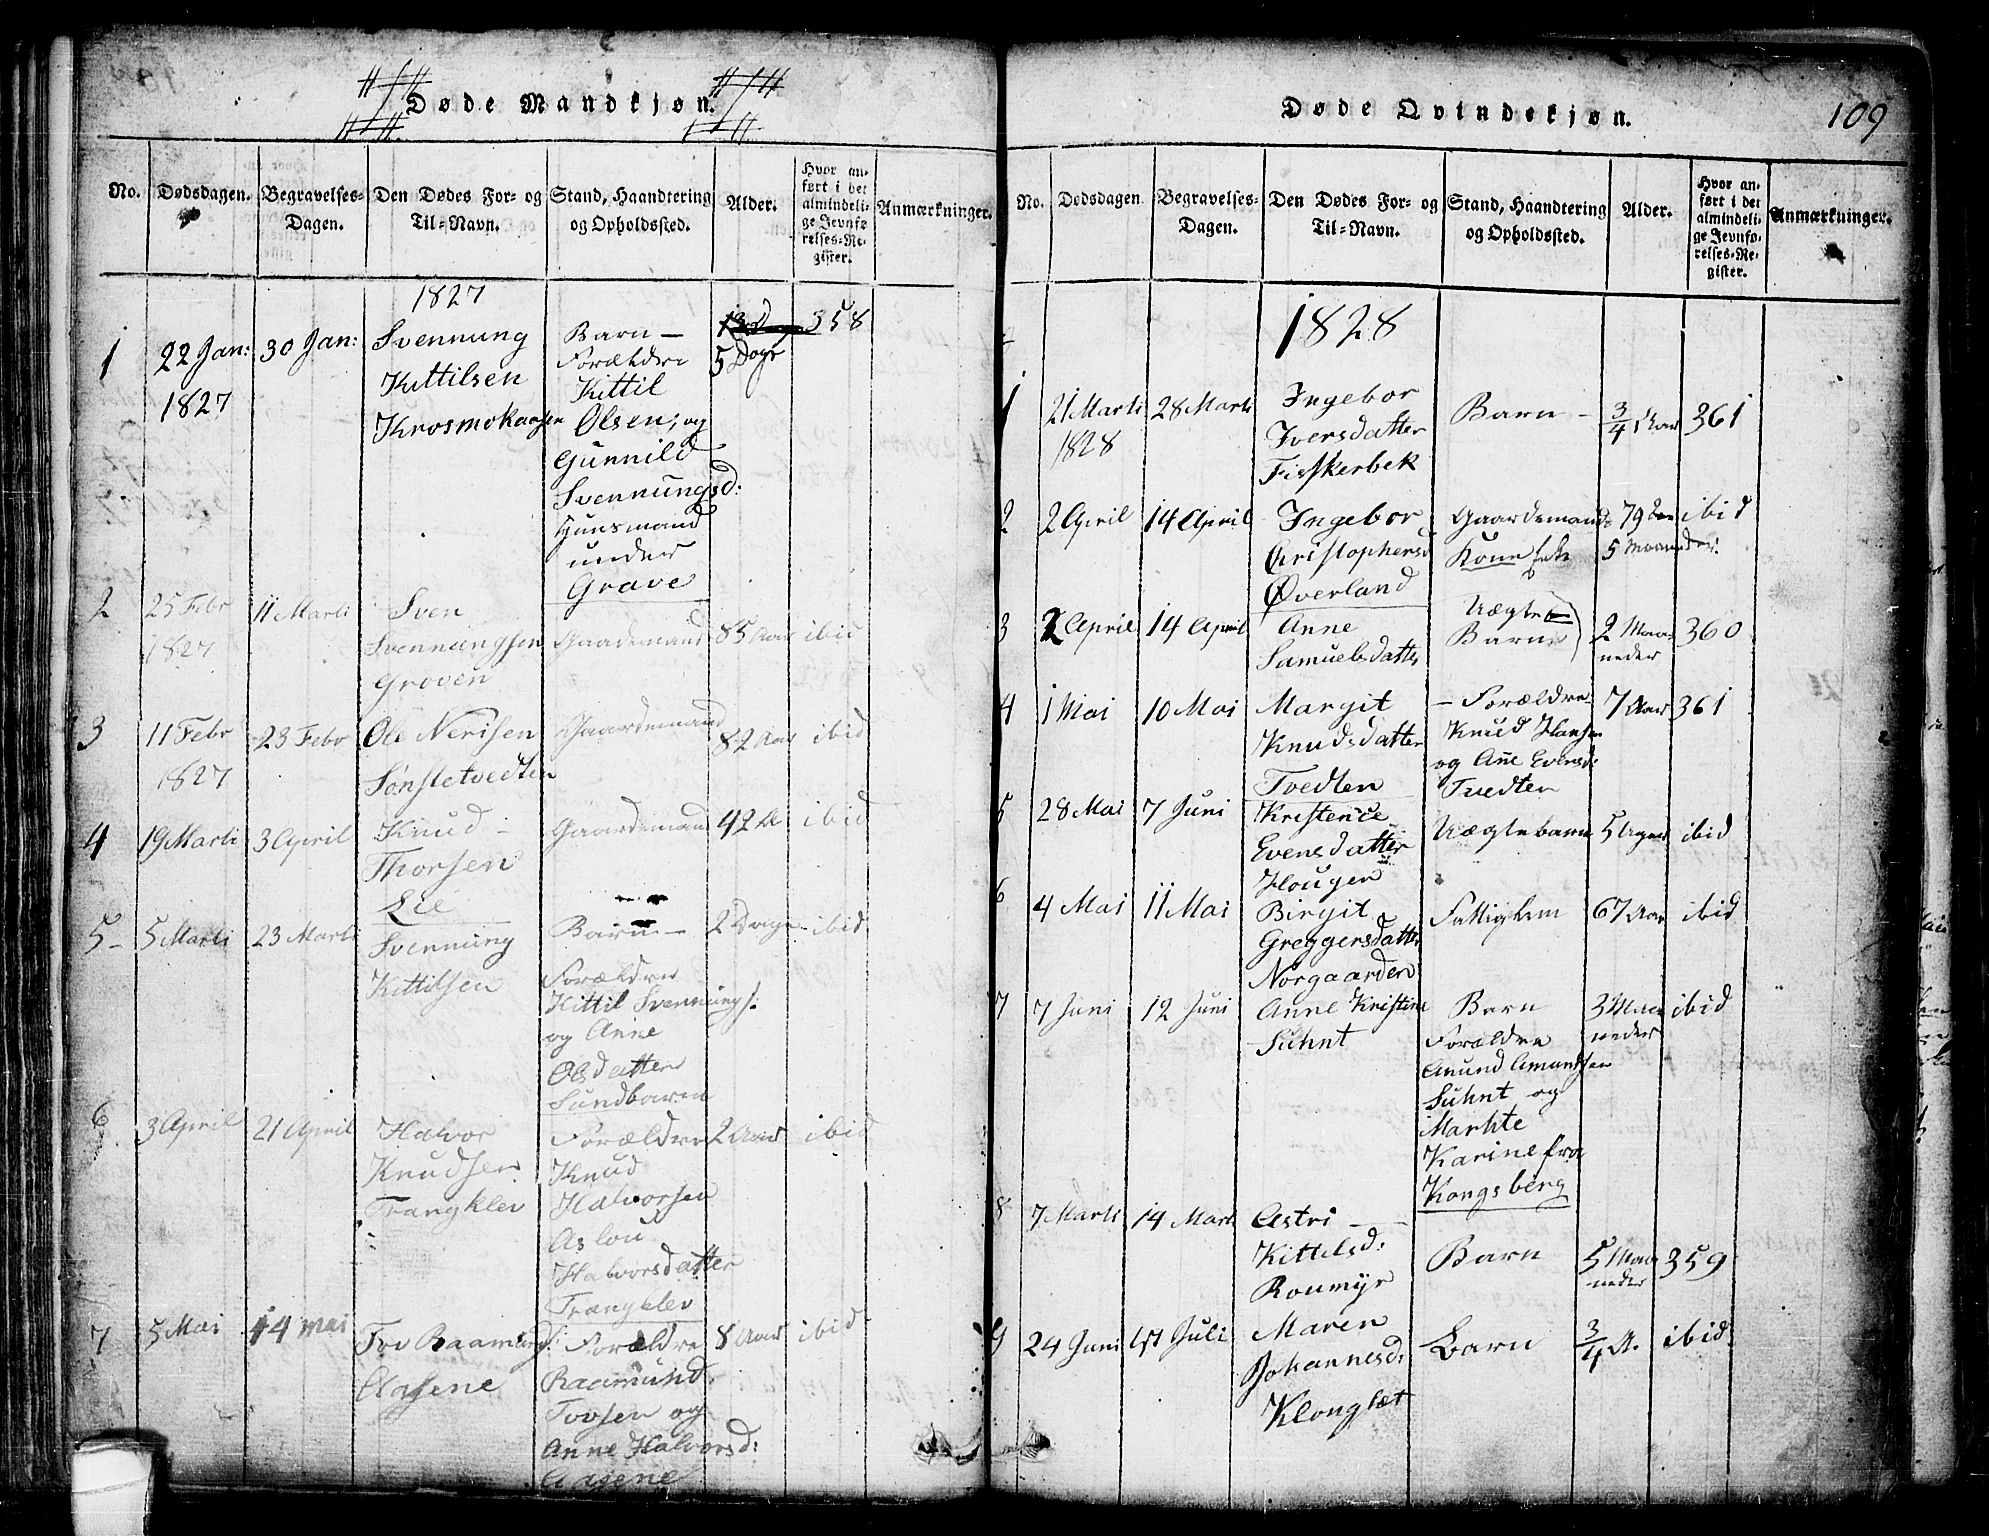 Døde Mandkjøn.
No. Dødsdagen. Begravelses-Dagen. Den Dødes For- og Til-Navn. Stand, Haandtering og Opholdssted. Alder. Hvor anført i det almindelige Jevnførelses-Register. Anmærkninger.
1827
1 22 Jan: 30 Jan: Svennung Barn – 358
1827 Kittilsen Forældre 5 Dage
Krosmokaasen Kittil
Olsen, og
Gunnild
Svennungsd:
Huusmand
under
Grave
2 25 Febr 11 Marti Sven
1827 Svennungsen Gaardemand 85 Aar ibid
Groven
3 11 Febr 23 Febr Ole Nerisen Gaardemand 82 Aar ibid
1827 Sønstetvedten
4 19 Marti 3 April Knud – Gaardemand 42 A ibid
Thorsen
Lie
5 – 5 Marti 23 Marti Svennung Barn – 2 Dage – ibid
Kittilsen Forældre
Kittil Svennungs:
og Anne
Olsdatter
Sundbarm
6 3 April 21 April Halvor Forældre 2 Aar ibid
Knudsen Knud
Trangklev Halvorsen
Aslou
Halvorsdatter
Trængklev
7 5 Mai 14 Mai Tov Raamunds: Forældre 8 Aar ibid
Aasene Raamund
Tovsen og
Anne Halvorsd:
Aasene
Døde Qvindekjøn.
109
No. Dødsdagen Begravelses-Dagen. Den Dødes For- og Til-Navn. Stand, Haandtering og Opholdssted. Alder. Hvor anført i det almindelige Jevnførelses-Register. Anmærkninger.
1828
1 21 Marti 28 Marti Ingebor Barn – 3/4 Aar 361
1828 Iversdatter
Fisskerbek
2 2 April 14 April Ingebor Gaardemands 79 Aar ibid
Christophersd Kone Enke 5 Maaneder
Øverland
3 2 April 14 April Anne Uægte 2 Maa- 360
Samuelsdatter Barn neder
4 1 Mai 10 Mai Margit – Forældre 7 Aar 361
Knudsdatter Knud Hansen
Tvedten og Ane Evensd:
Tvedten
5 28 Mai 7 Juni Kristence Uægtebarn 5 Uger ibid
Evensdatter
Hougen
6 4 Mai 11 Mai Birgit Fattiglem 67 Aar ibid
Greggersdatter
Norgaarden
7 7 Juni 12 Juni Anne Kristine Barn 3 Maa- ibid
Suhnt Forældre neder
Anund Amundsen
Suhnt og
Marhte
Karine fra
Kongsberg
8 7 Marti 14 Marti Astri –
Kittelsd: Barn 5 Maa- 359
Roumyr neder
9 24 Juni Juli Maren Barn 3/4 A. ibid
Johannesd:
Klonglet